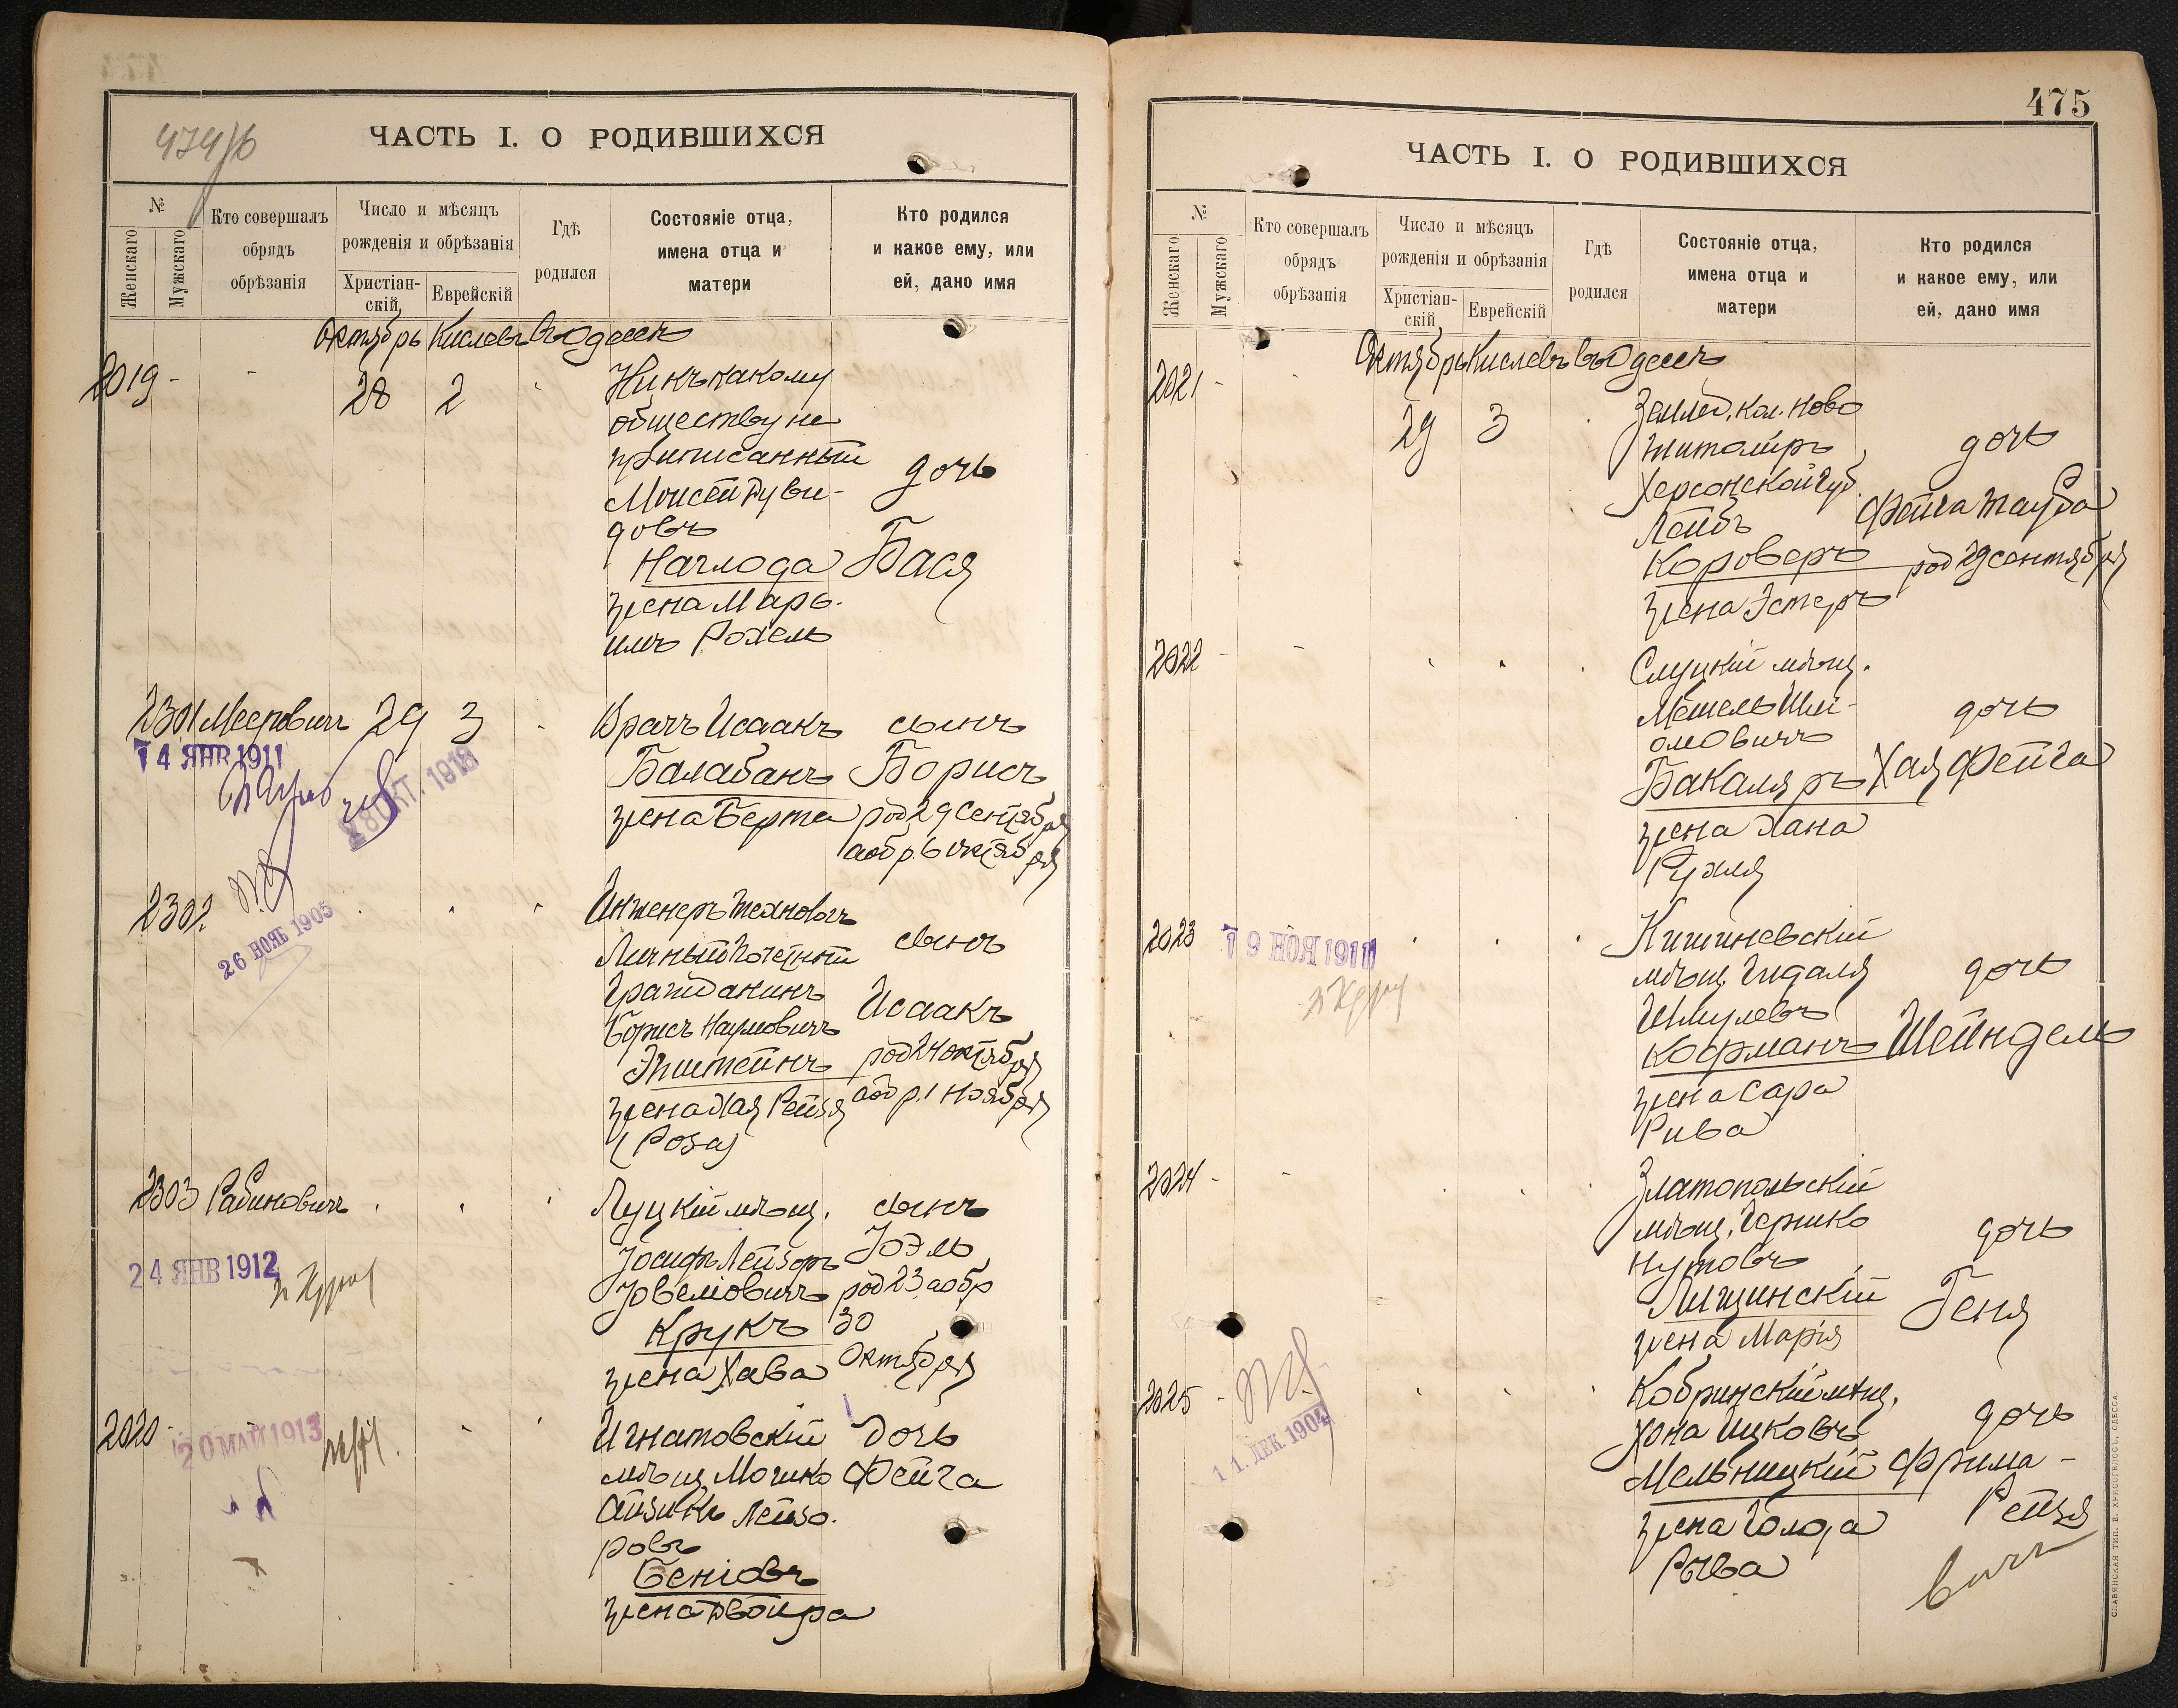 474/б
ЧАСТЬ I. О РОДИВШИХСЯ
№
Женскаго
Мужскаго
Кто совершалъ
обрядъ
обрѣзанія
Число и мѣсяцъ
рожденія и обрѣзанія
Христіан-
скій
Еврейскій
Гдѣ
родился
Состояніе отца,
имена отца и
матери
Кто родился
и какое ему, или
ей, дано имя
Октябрь Кислевъ въ Одессѣ
2019 - - 28 2
Ни къ какому
обществу не
приписанный
Моисей Дуви-
довъ
Наглода
жена Марь-
имъ Рохель
дочь
Бася
2301 Меерович 29 3
14 ЯНВ 1911
28 ОКТ. 1918
Врачъ Исаакъ
Балабанъ
жена Берта
сынъ
Борисъ
род 29 Сентября
а обр. 6 октября
2302
26 НОЯБ 1905
Инженеръ технологъ
Личный Почетный
Гражданинъ
Борисъ Наумовичъ
Эпштейнъ
жена Хая Рейзя
(Роза)
сынъ
Исаакъ
род 24 октября
а обр. 1 ноября
2303 Рабиновичъ
24 ЯНВ 1912
Луцкій мѣщ.
Іосифъ Лейзеръ
Іовеліовичъ
Крукъ
жена Хава
сынъ
Іоэль
род 23 а обр
30
Октября
2020 -
20 МАЙ 1913
Игнатовскій
мѣщ. Мошко
Айзикъ Лейзо-
ровъ
Беніовъ
жена Двойра
дочь
Фейга
475
ЧАСТЬ I. О РОДИВШИХСЯ
№
Женскаго
Мужскаго
Кто совершалъ
обрядъ
обрѣзанія
Число и мѣсяцъ
рожденія и обрѣзанія
Христіан-
скій
Еврейскій
Гдѣ
родился
Состояніе отца,
имена отца и
матери
Кто родился
и какое ему, или
ей, дано имя
Октябрь Кислевъ въ Одессѣ
2021 - - 29 3
Землед. кол. Ново
житомиръ
Херсонской губ.
Лейбъ
Короверъ
жена Эстеръ
дочь
Фейга Тауба
род 29 сентября
2022 - -
Слуцкій мѣщ.
Мешель Шли-
омовичъ
Бакаляръ
жена Хана
Рухля
дочь
Хая Фейга
2023
19 НОЯ 1911
Кишиневскій
мѣщ. Гидаля
Шмулевъ
Кофманъ
жена Сара
Рива
дочь
Шейндель
2024 - -
Златопольскій
мѣщ. Гершко
Нутовъ
Лищинскій
жена Марія
дочь
Геня
2025 -
11. ДЕК 1904
Кобринскій мѣщ.
Хона Ицковъ
Мельницкій
жена Голда
Рыва
дочь
Фрима -
Рейзя
СЛАВЯНСКАЯ ТИП. Е. ХРИСОГЕЛОСЪ, ОДЕССА.